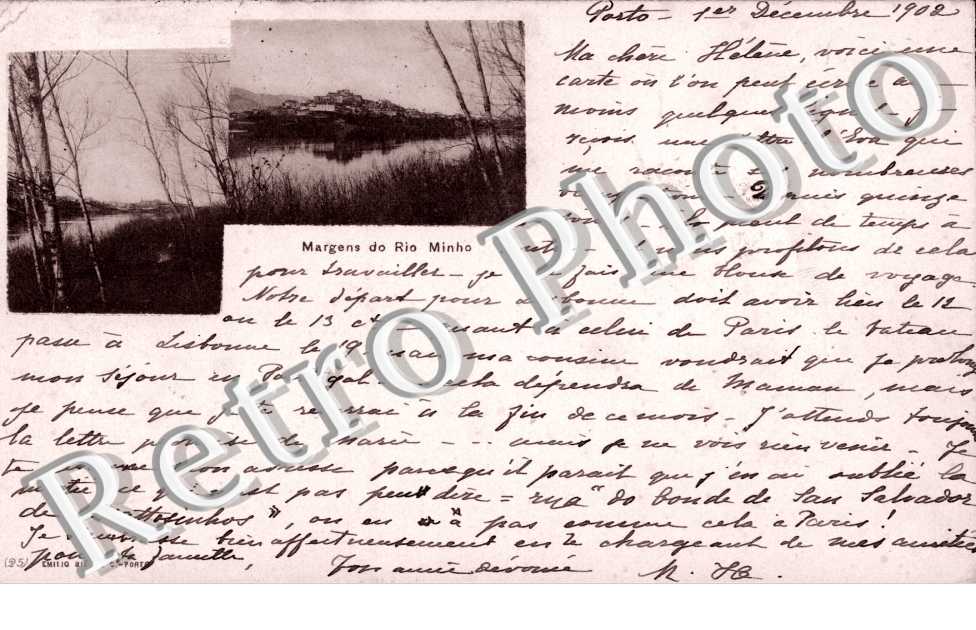 Porto - 1er Décembre 1902
Ma chère Hélène, voici une
carte où l'on peut écrire au
moins quelques lignes. Je
reçois une lettre d'Eva qui
me raconte de nombreuses
depuis quinze
peu de temps à
Margens do Rio Minho
nous profitons de cela
pour travailler - je fais une House de voyage
Notre départ pour Lisbonne doit avoir lieu le 12
ou le 13 ct - quant à celui de Paris le bateau
passe à Lisbonne le 19 mais ma cousine voudrait que je
mon séjour en Portugal. cela dépendra de Maman, mais
je pense que je te reverrai à la fin de ce mois - J'attends
la lettre promise de Marie - .. mais je ne vois rien venir - Je
te mon adresse parcequ'il parait que j'en ai oublié la
moitié ce qui n'est pas peu dire = rua do Conde de San Salvador
de Mattosinhos", on en a pas comme cela à Paris!
Je bien affectueusement en te chargeant de mes amitiés
pour ta famille,
Ton amie dévouée
M. H.
(95) EMILIO BIEL & C.ª - PORTO
Retro Photo